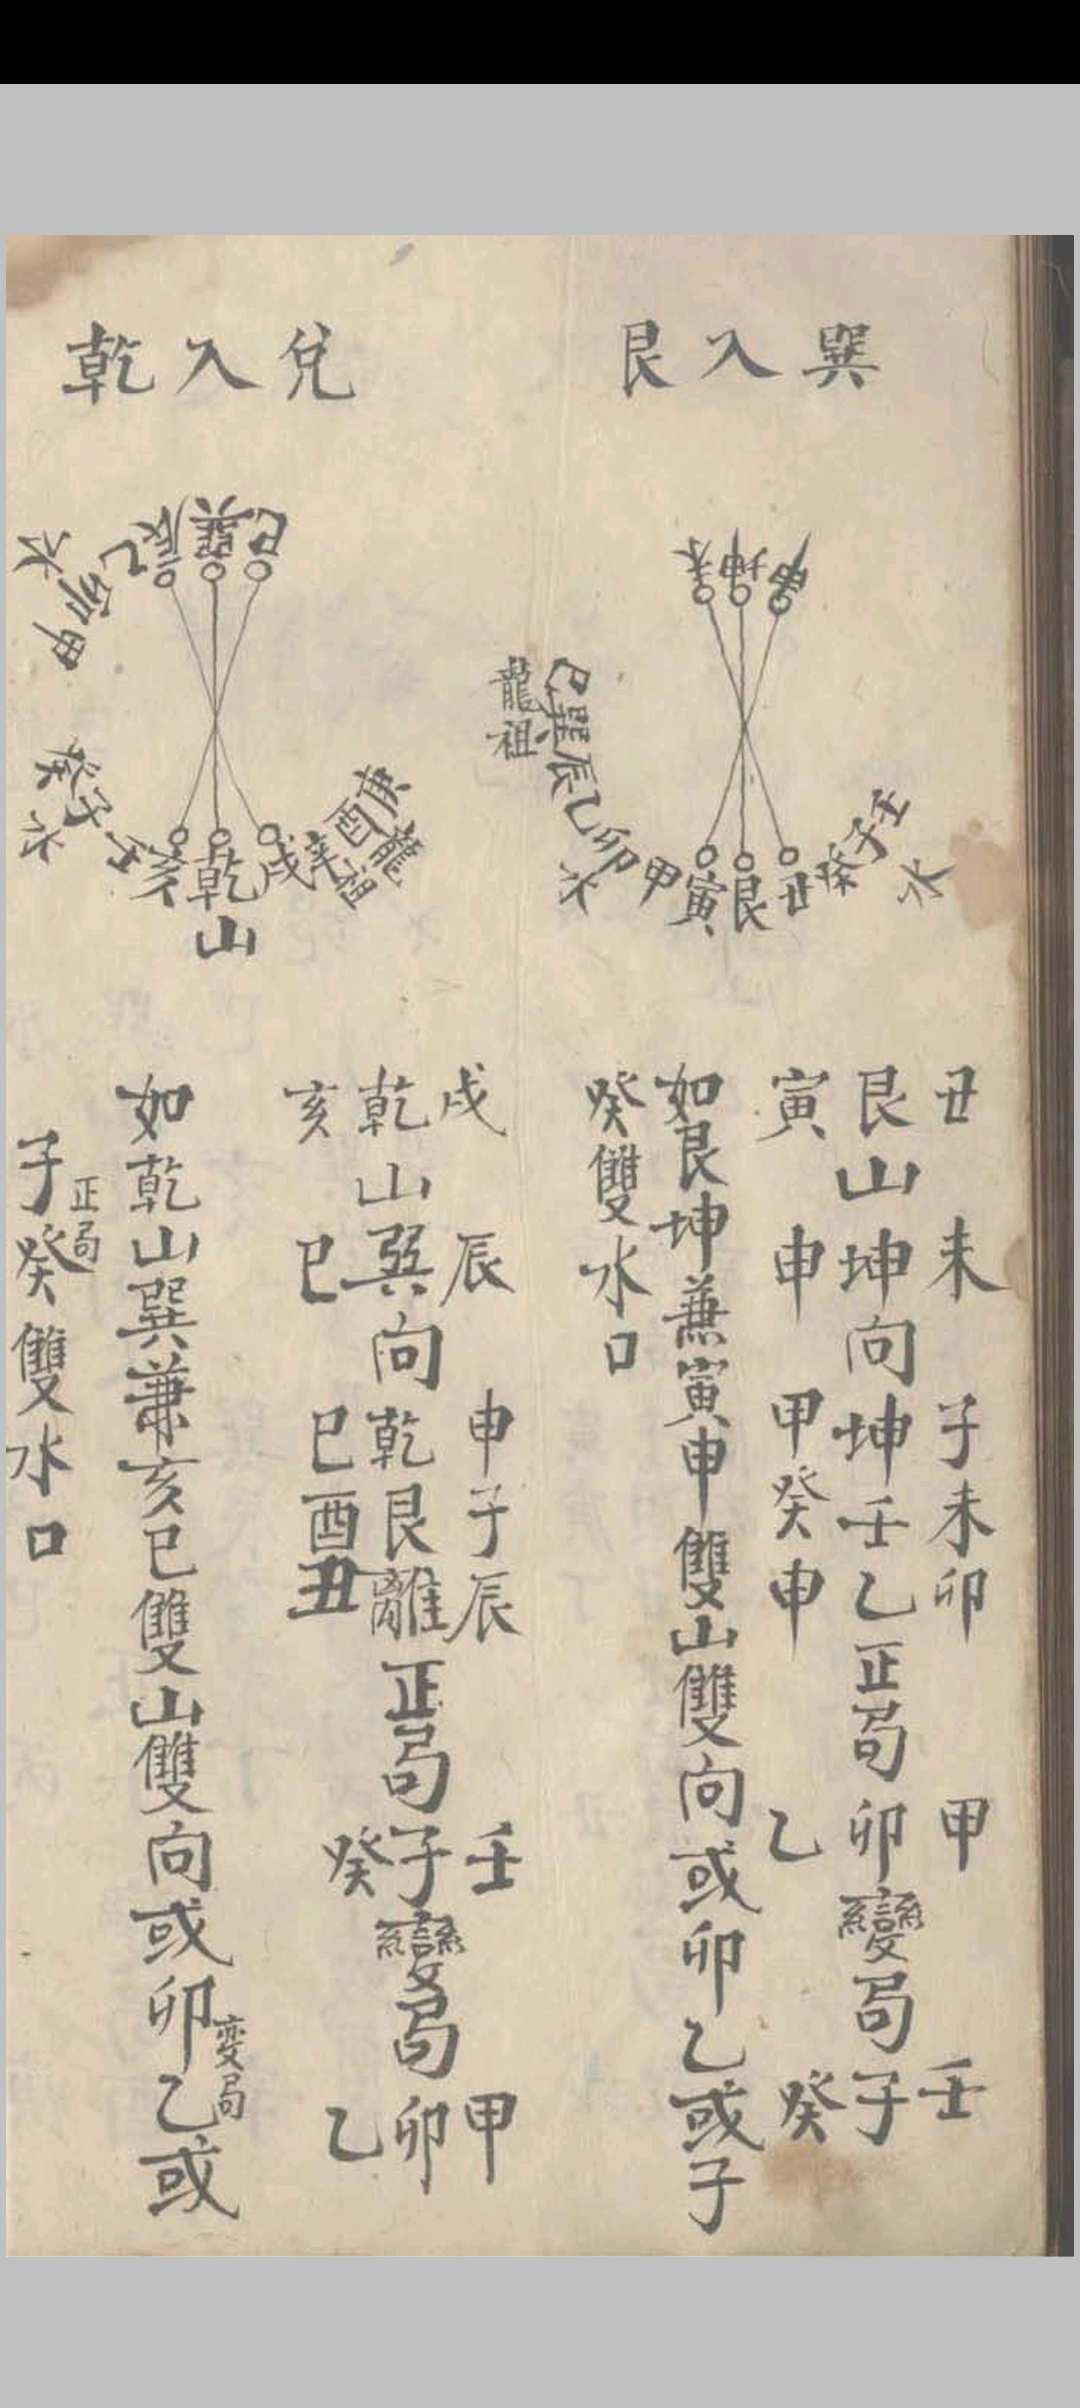 巽入艮
申
坤
未
壬子癸
水
丑艮寅甲
卯乙辰巽巳
水
龍祖
丑　未　子未卯　甲　壬
艮山坤向坤壬乙正局卯變局子
寅　申　甲癸申　乙　癸
如艮坤兼寅申雙山雙向或卯乙或子
癸雙水口
兌入乾
巳巽辰乙
卯甲
水
庚酉辛
龍祖
戌乾亥壬
子癸
水
山
戌　辰　申子辰　壬　甲
乾山巽向乾艮離正局子變局卯
亥　巳　巳酉丑　癸　乙
如乾山巽兼亥巳雙山雙向或卯乙或
變局
正局
子癸雙水口